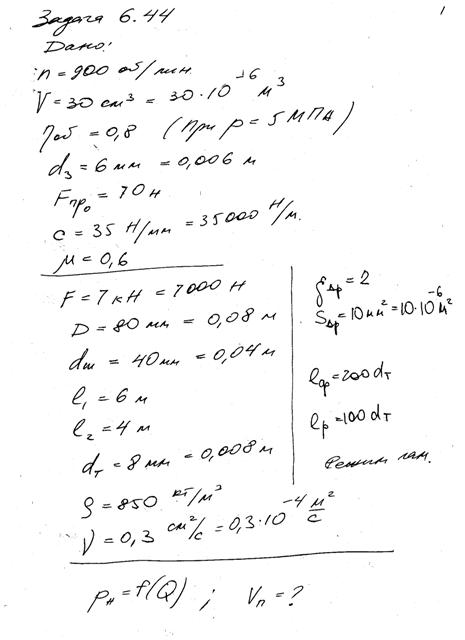 Задача 6.44
1
Дано:
n = 900 об/мин.
V = 30 см³ = 30·10⁻⁶ м³
ηоб = 0,8 (при p = 5 МПа)
dз = 6 мм = 0,006 м
Fпро = 70 н
c = 35 Н/мм = 35000 Н/м.
μ = 0,6
F = 7 кН = 7000 Н
D = 80 мм = 0,08 м
dш = 40 мм = 0,04 м
l₁ = 6 м
l₂ = 4 м
dт = 8 мм = 0,008 м
ρ = 850 кг/м³
ν = 0,3 см²/с = 0,3·10⁻⁴ м²/с
ζдр = 2
Sдр = 10 мм² = 10·10⁻⁶ м²
lф = 200 dт
lр = 100 dт
Режим лам.
pн = f(Q) ; Vп = ?